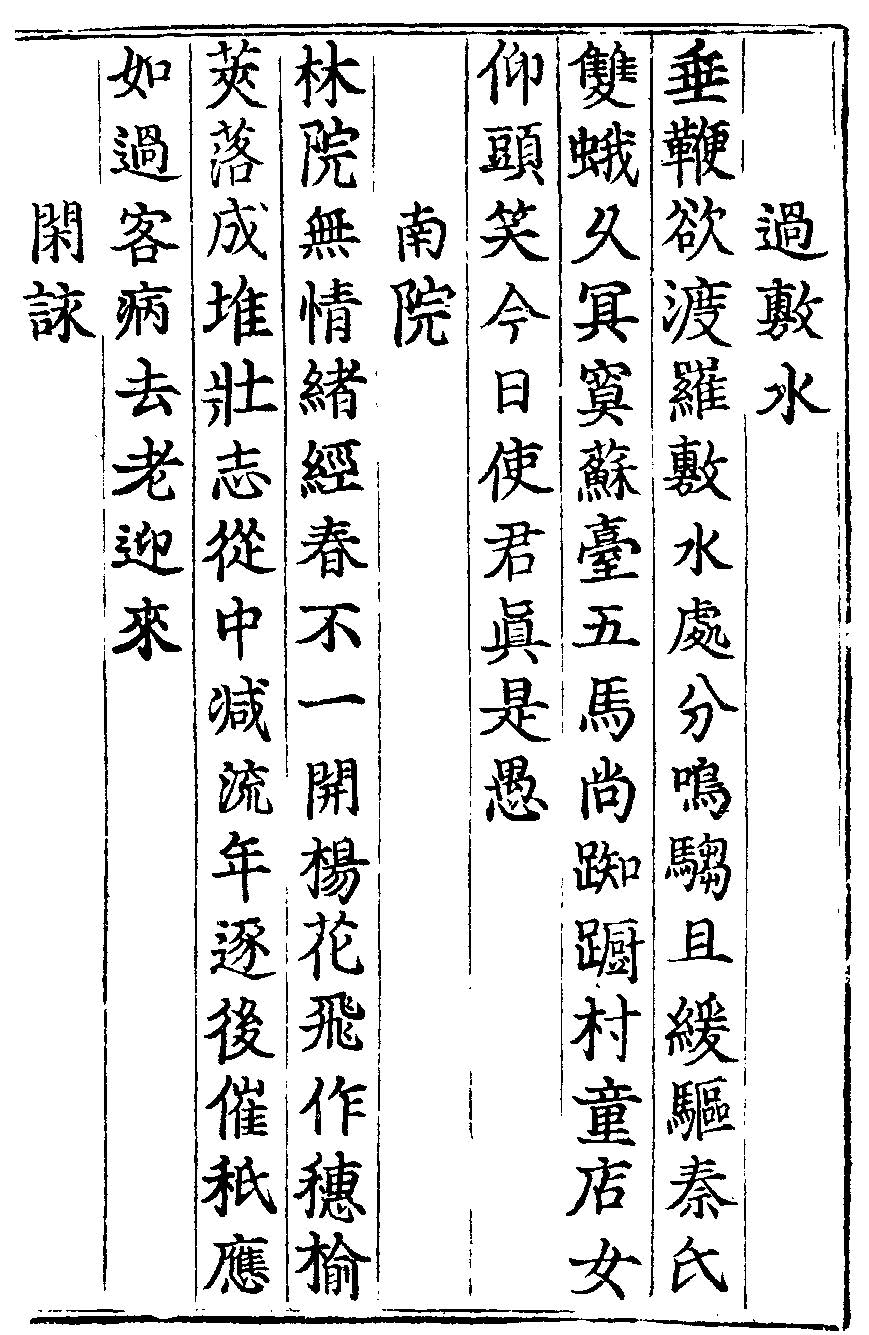 過敷水
垂鞭欲渡羅敷水處分鳴騶且緩驅秦氏
雙蛾久冥寞蘇臺五馬尚踟躕村童店女
仰頭笑今日使君真是愚
南院
林院無情緒經春不一開楊花飛作穗榆
莢落成堆壯志從中減流年逐後催秪應
如過客病去老迎來
閑詠